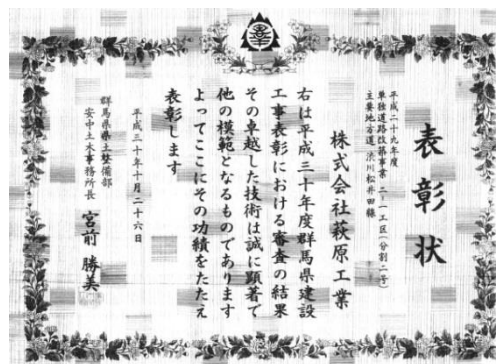 表彰状
平成二十九年度
単独道路改築事業 二-一工区(分割二号)
主要地方道 渋川松井田線
株式会社萩原工業
右は平成三十年度群馬県建設
工事表彰における審査の結果
その卓越した技術は誠に顕著で
他の模範となるものであります
よってここにその功績をたたえ
表彰します
平成三十年十月二十六日
群馬県県土整備部
安中土木事務所長 宮前 勝美